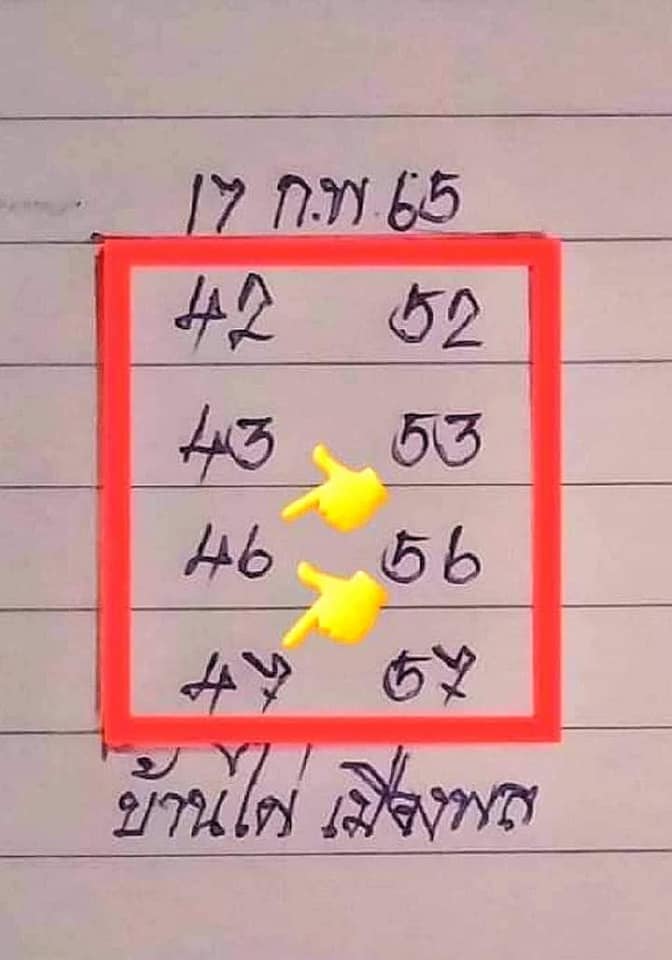 17 ก.พ. 65
42 52
43 53
46 56
47 57
บ้านไผ่ เมืองพล